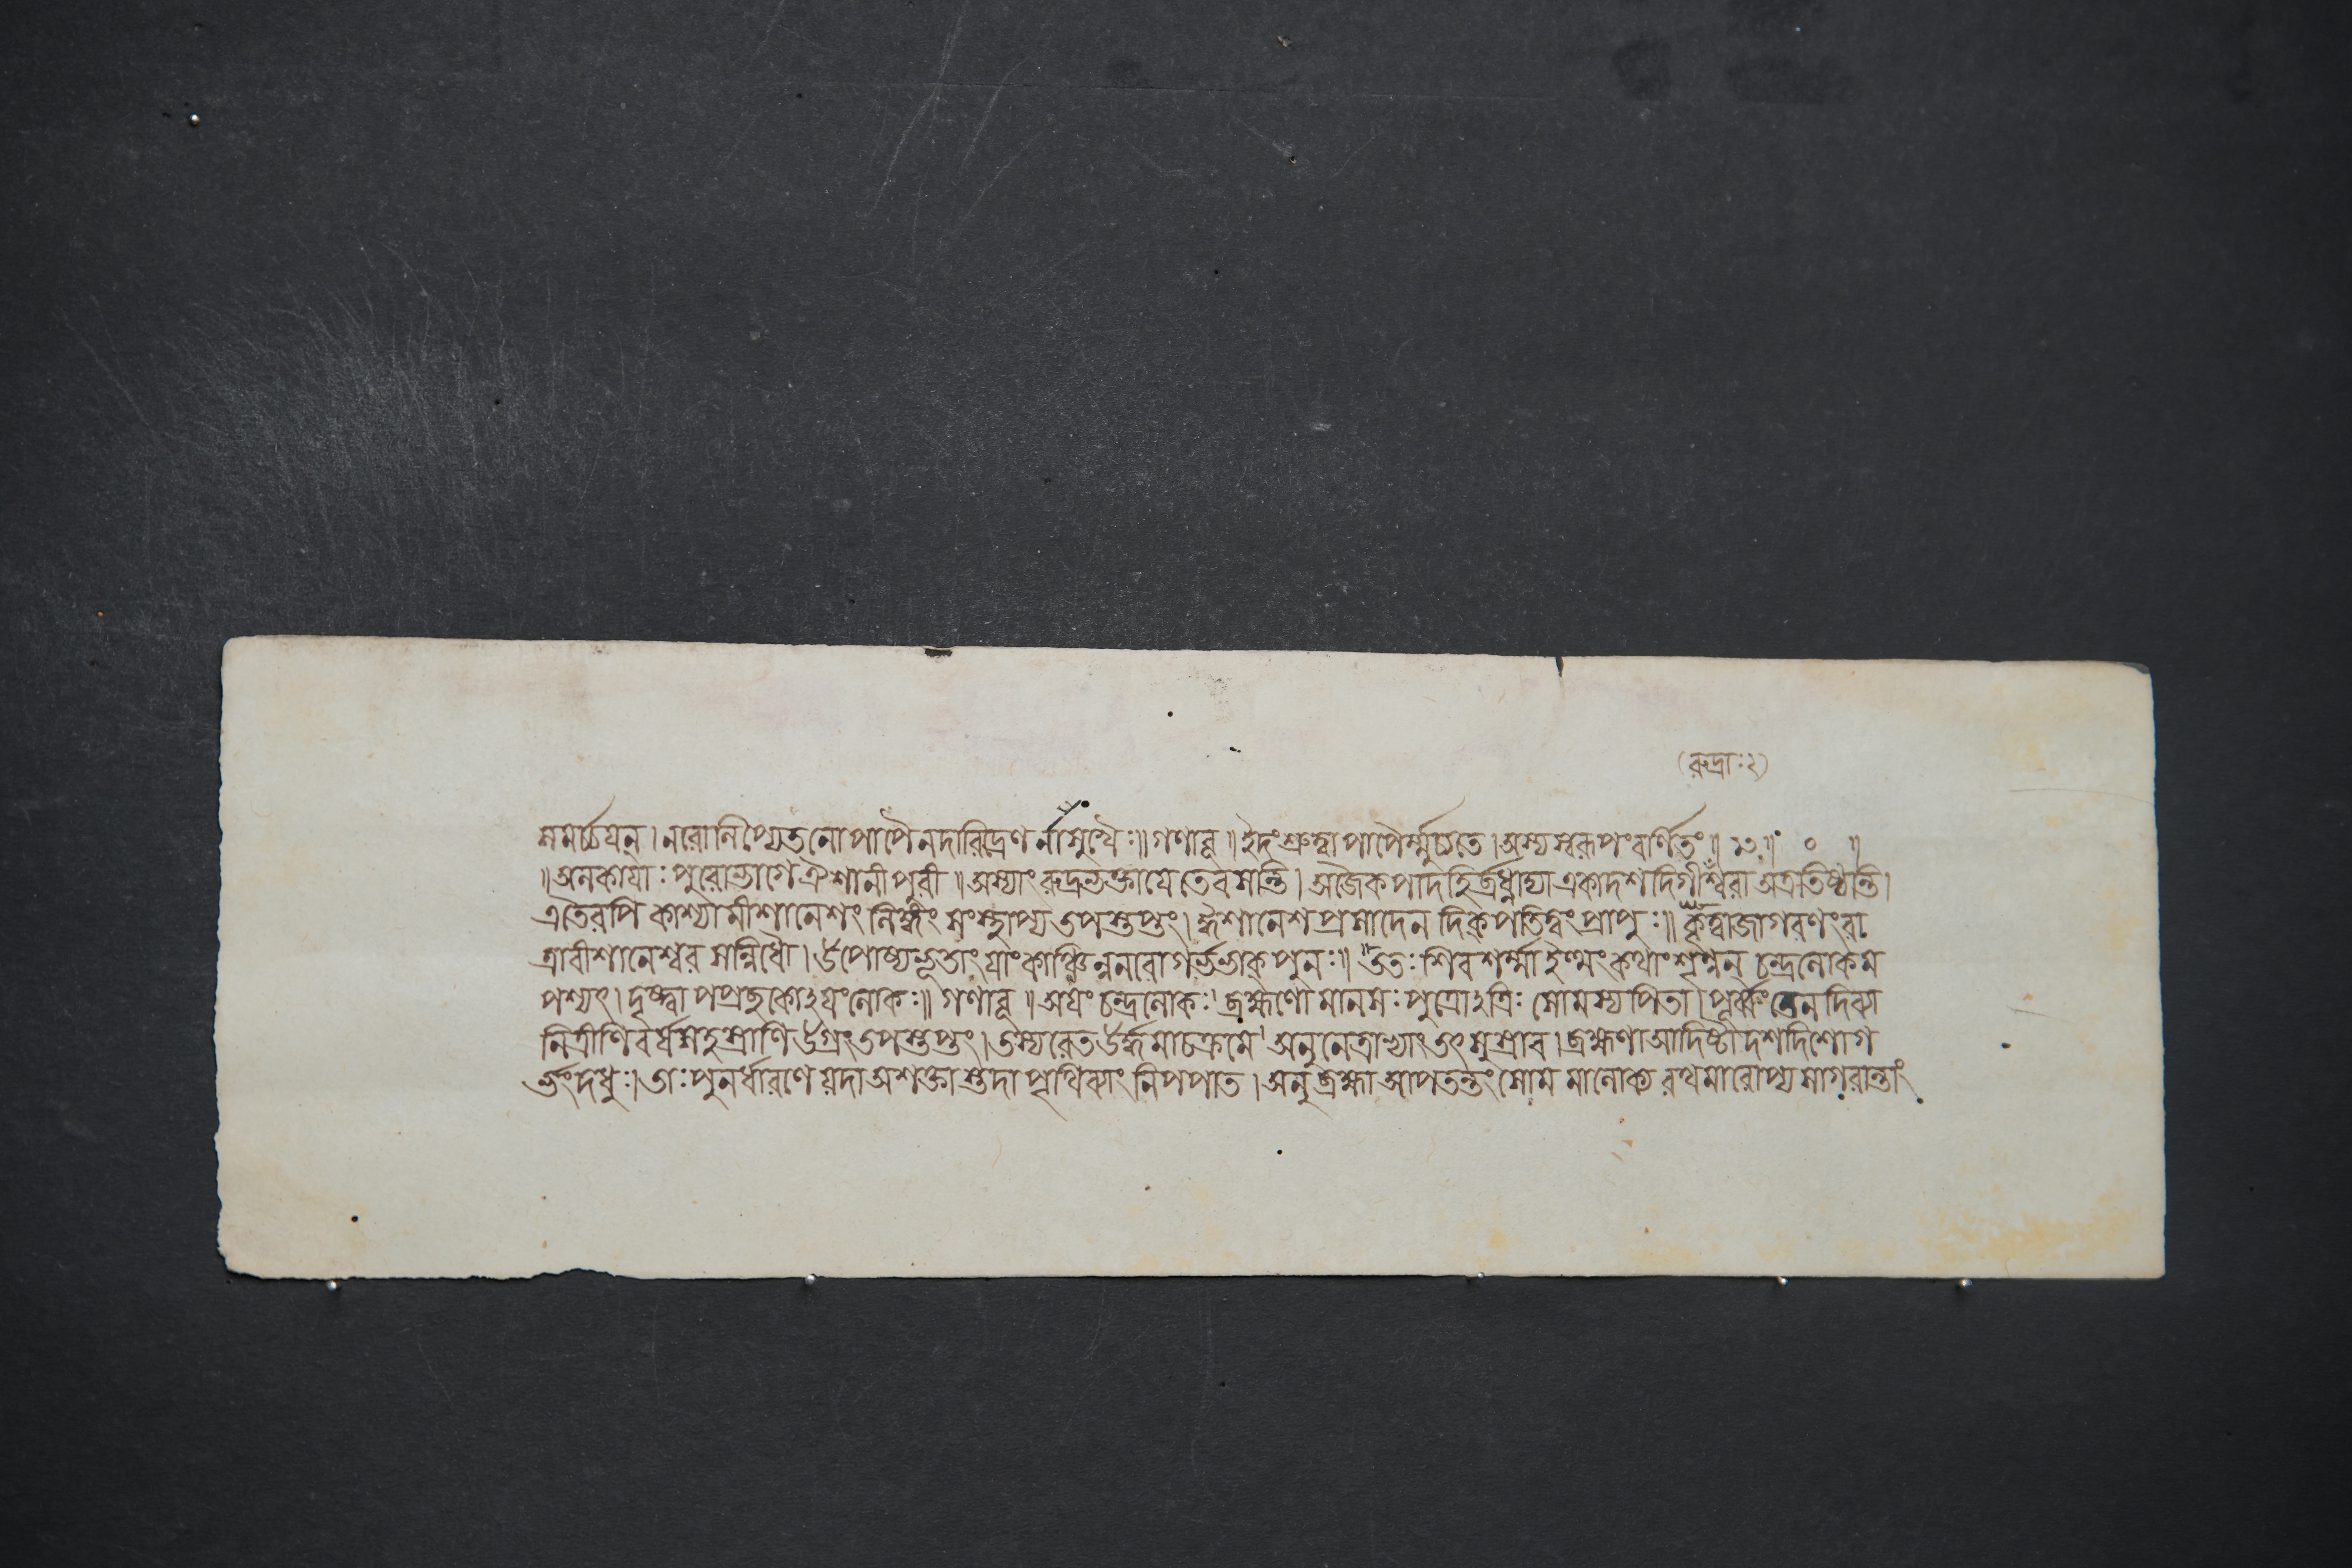 (রুদ্রাঃ২)
সমর্চ্চযন্। নরোলিপ্যেতনোপাপৈ নদারিদ্রেণ র্নাসুখৈঃ॥ গণাবূ॥ ইদং শ্রুত্বা পাপৈর্ম্মুচ্যতে। অস্য স্বরূপং বর্ণিতং॥ ১৩॥ ০ ॥
॥ অলকাযাঃ পুরোভাগে ঐশানী পুরী॥ অস্যাং রুদ্রভক্তা যে তে বসন্তি। অজৈকপাদহির্ব্রধ্নাদ্যা একাদশ দিগীশ্বরা অত্র তিষ্ঠন্তি।
এতৈরপি কাশ্যামীশানেশং লিঙ্গং সংস্থাপ্য তপস্তপ্তং। ঈশানেশ প্রসাদেন দিক্পতিত্বং প্রাপুঃ॥ কৃত্বা জাগরণং রা
ত্রাবীশানেশ্বর সন্নিধৌ। উপোষ্য ভূতাং যাং কাঞ্চিন্ননরো গর্ভভাক্ পুনঃ॥ ততঃ শিবশর্ম্মা ইত্থং কথাং শৃণ্বন্ চন্দ্রলোকম
পশ্যৎ। দৃষ্ট্বা পপ্রছ কোঽযং লোকঃ॥ গণাবূ॥ অযং চন্দ্রলোকঃ। ব্রহ্মণো মানসঃ পুত্রোঽত্রিঃ সোমস্য পিতা। পূর্ব্বং তেন দিব্যা
নি ত্রীণি বর্ষসহস্রাণি উগ্রং তপস্তপ্তং। তস্য রেত উর্দ্ধমাচক্রমে। অনু নেত্রাভ্যাং তৎ সুস্রাব। ব্রহ্মণা আদিষ্টা দশদিশো গ
র্ভং দধুঃ। তাঃ পুনর্ধারণে যদা অশক্তাস্তদা পৃথিব্যাং নিপপাত। অনু ব্রহ্মা আপতন্তং সোমমালোক্য রথমারোপ্য সাগরান্তাং